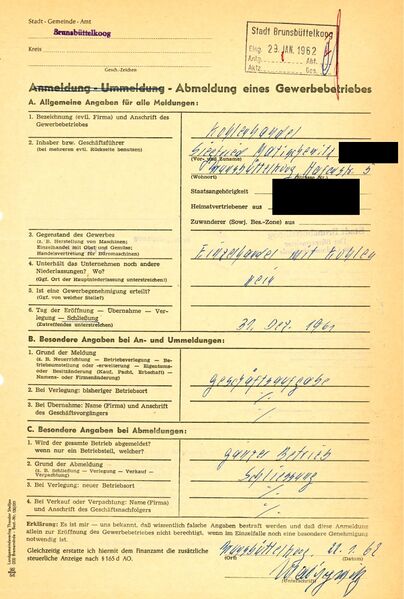 Stadt - Gemeinde - Amt
Brunsbüttelkoog
Kreis
Gesch.-Zeichen
Stadt Brunsbüttelkoog
Eing. 29. JAN. 1962
Antp. Abt.
Aktz. Ges.
Anmeldung - Ummeldung - Abmeldung eines Gewerbebetriebes
A. Allgemeine Angaben für alle Meldungen:
1. Bezeichnung (evtl. Firma) und Anschrift des Gewerbebetriebes
Kohlenhandel
2. Inhaber bzw. Geschäftsführer
(bei mehreren evtl. Rückseite benutzen)
Siegfried
(Vor- und Zuname)
Brunsbüttelkoog 5
(Wohnort)
Staatsangehörigkeit
Heimatvertriebener aus
Zuwanderer (Sowj. Bes.-Zone) aus
3. Gegenstand des Gewerbes
(z. B. Herstellung von Maschinen;
Einzelhandel mit Obst und Gemüse;
Handelsvertretung für Büromaschinen)
Einzelhandel mit Kohlen
4. Unterhält das Unternehmen noch andere
Niederlassungen? Wo?
(Ggf. Ort der Hauptniederlassung unterstreichen!)
nein
5. Ist eine Gewerbegenehmigung erteilt?
(Ggf. von welcher Stelle?)
6. Tag der Eröffnung — Übernahme — Ver-
legung — Schließung
(Zutreffendes unterstreichen)
31. Dez. 1961
B. Besondere Angaben bei An- und Ummeldungen:
1. Grund der Meldung
(z. B. Neuerrichtung - Betriebsverlegung - Be-
triebsumstellung oder -erweiterung - Eigentums-
oder Besitzänderung (Kauf, Pacht, Erbschaft) —
Namens- oder Firmenänderung)
Geschäftsaufgabe
2. Bei Verlegung: bisheriger Betriebsort
%
3. Bei Übernahme: Name (Firma) und Anschrift
des Geschäftsvorgängers
%
C. Besondere Angaben bei Abmeldungen:
1. Wird der gesamte Betrieb abgemeldet?
wenn nur ein Betriebsteil, welcher?
ganzer Betrieb
2. Grund der Abmeldung
(z. B. Schließung — Verlegung — Verkauf —
Verpachtung)
Schliessung
3. Bei Verlegung: neuer Betriebsort
%
4. Bei Verkauf oder Verpachtung: Name (Firma)
und Anschrift des Geschäftsnachfolgers
%
Erklärung: Es ist mir — uns bekannt, daß wissentlich falsche Angaben bestraft werden und daß diese Anmeldung
allein zur Eröffnung des Gewerbebetriebes nicht berechtigt, wenn im Einzelfalle noch eine besondere Genehmigung
notwendig ist.
Gleichzeitig erstatte ich hiermit dem Finanzamt die zusätzliche
steuerliche Anzeige nach § 165 d AO.
Brunsbüttelkoog, 22.1.62
(Ort) (Datum)
(Unterschrift)